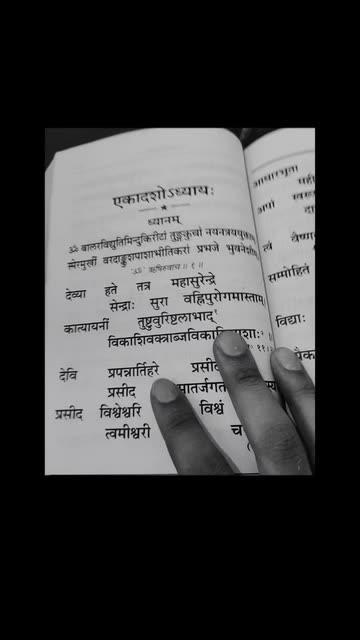 एकादशोऽध्यायः
ध्यानम्
ॐ बालरविद्युतिमिन्दुकिरीटां तुङ्गकुचां नयनत्रययुक्ताम्
स्मेरमुखीं वरदाङ्कुशपाशाभीतिकरां प्रभजे भुवनेशीम्
'ॐ' ऋषिरुवाच ॥ १ ॥
देव्या हते तत्र महासुरेन्द्रे
सेन्द्राः सुरा वह्निपुरोगमास्ताम्।
कात्यायनीं तुष्टुवुरिष्टलाभाद्
विकाशिवक्त्राब्जविकाशिताशाः
देवि प्रपन्नार्तिहरे
प्रसीद
प्रसीद विश्वेश्वरि विश्वं
त्वमीश्वरी
आधारभूता
मही
अपां
त्वं वैष्ण
सम्मोहितं
विद्याः